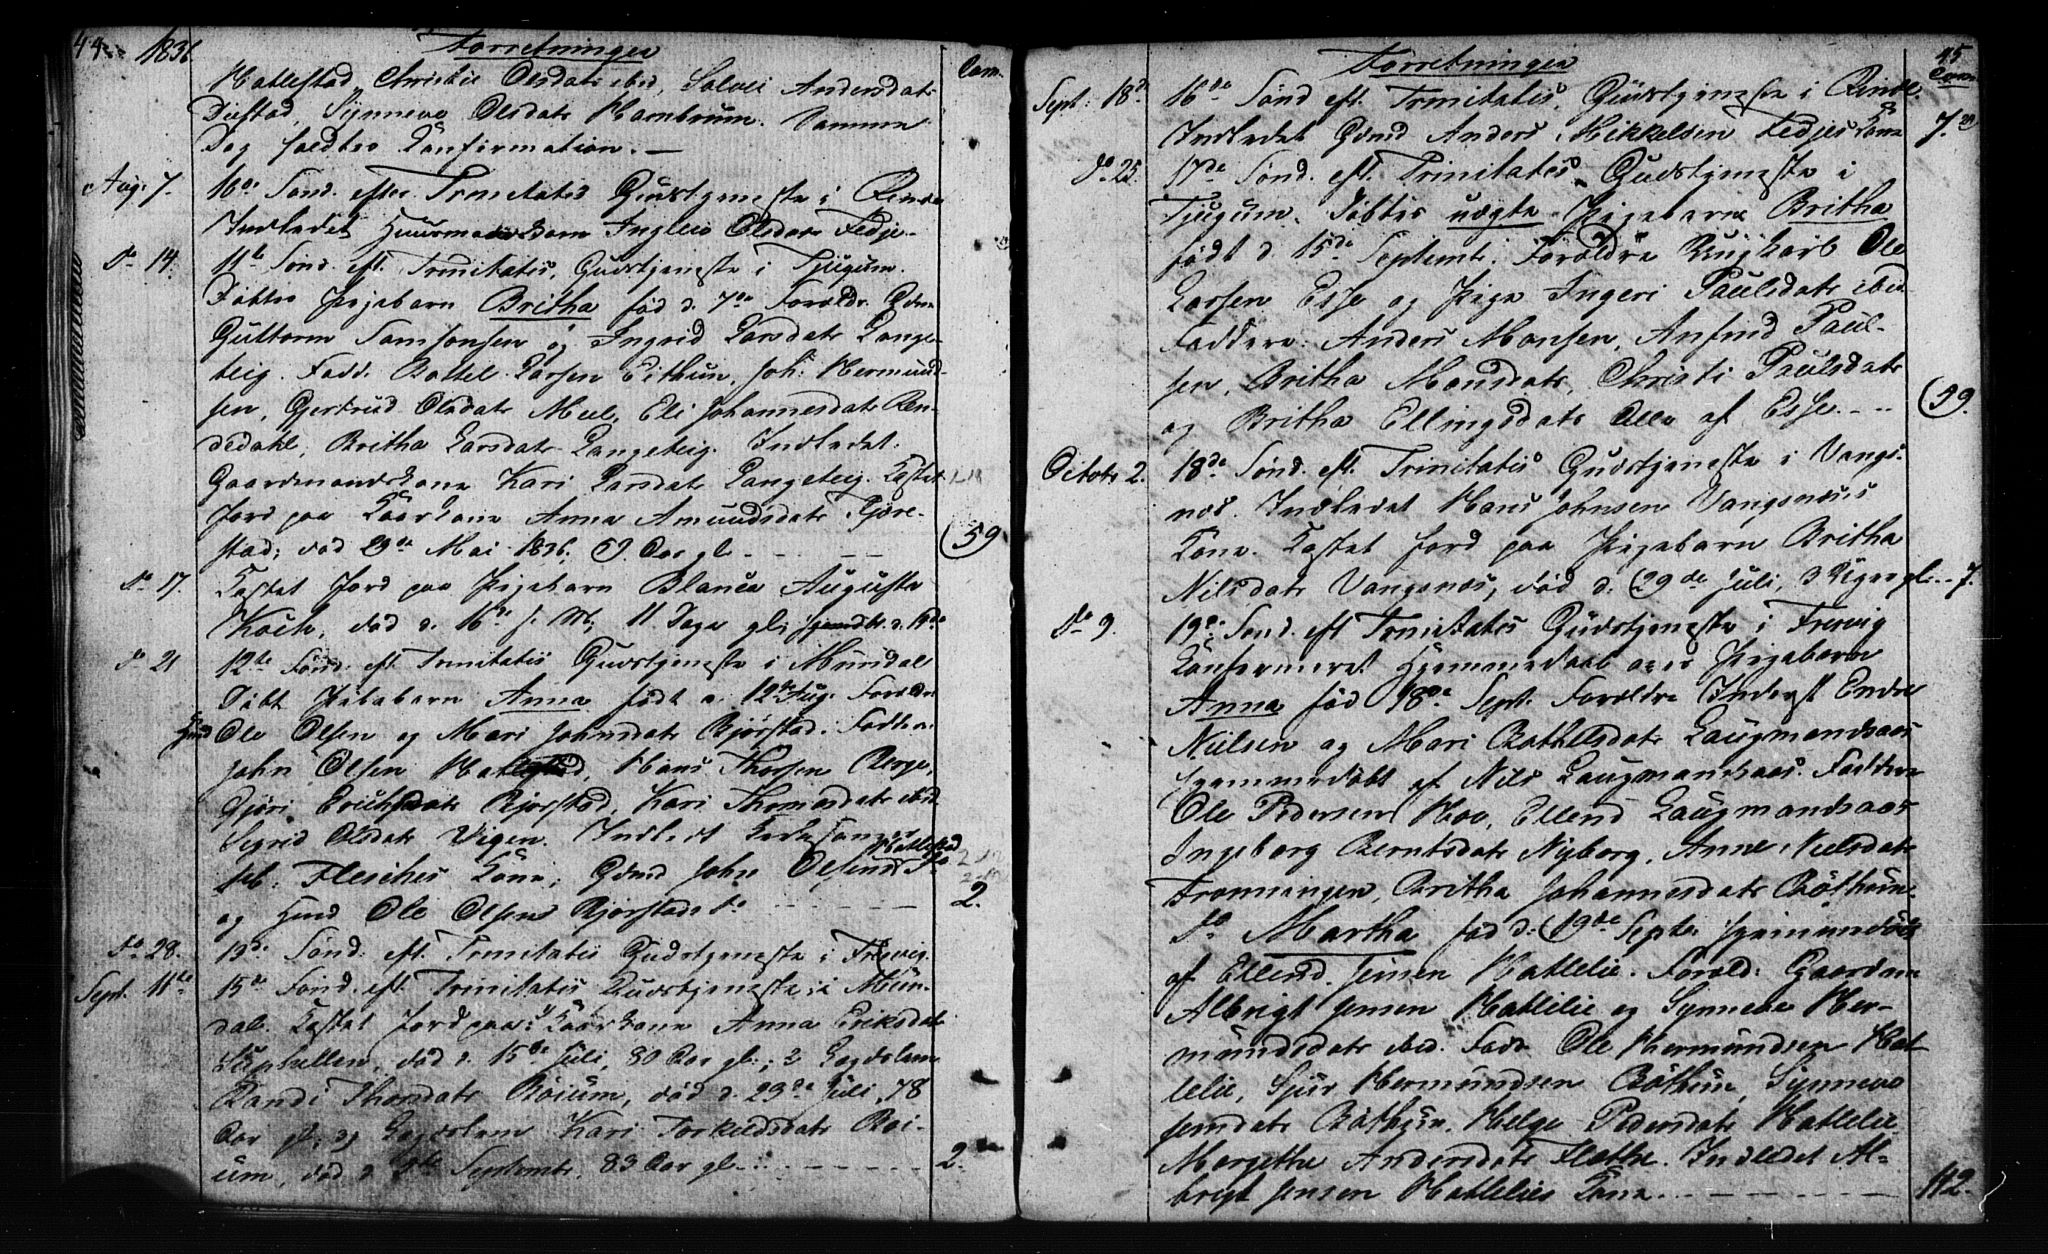 44. 1836
Forretninger
Com.
Hatlestad, Christie Olsdatr ibid, Solvei Andersdatr
Distad, Synneva Olsdatr Hambrum. Samme
Dag holdtes Confirmation. —
Aug: 7. 10de Sønd. efter Trinitatis Gudstjeneste i Rinde
Indledet Huusmands Kone Ingleiv Olsdatr Fedje.
Do 14. 11te Sønd. eft. Trinitatis, Gudstjeneste i Tjugum.
Døbtes Pigebarn Britha fød d. 7de Forældr. Gdm.
Guttorm Samsonsen og Ingrid Larsdatr Lange-
teig. Fadd. Bottel Larsen Eithun, Joh: Hermund-
sen, Gjertrud Olsdatr Meel, Eli Johannesdatr Ren-
dedahl, Britha Larsdatr Langeteig. Indledet:
Gaardmandskone Kari Larsdatr Langeteig. Kastet
Jord paa Kaarkone Anna Amundsdatr Fjøre-
stad, død 29de Mai 1836, Aar gl. - - - 59
Do 17. Kastet Jord paa Pigebarn Blanca Augusta
Koch, død d. 16de s. M; 11 Dage gl;
Do 21 12te Sønd. eft. Trinitatis Gudstjeneste i Mundal
Døbt Pigebarn Anna født d. 12te Aug. Forældre
Hmd Ole Olsen og Mari Johnsdatr Bjørstad. Faddere
John Olsen Hatlestad, Hans Thorsen Berge,
Gjøri Erichsdatr Bjørstad, Kari Thomasdatr ibid
Sigrid Olsdatr Vigen. Indledt
Fleiches Kone, Gdmd John Olsens Hatlestad Do
og Hmd Ole Olsens Bjørstad Do - - - 2.
Do 28. 13de Sønd. eft. Trinitatis Gudstjeneste i Fresvig.
Sept. 11te 15de Sønd. eft. Trinitatis Gudstjeneste i Mun-
dal. Kastet Jord paa: Kaarkone Anna Eriksdatr
Suphellen, død d. 15de Juli, 80 Aar gl.; 2 Lægdslem
Randi Thorsdatr Bøium, død d. 23de Juli, 78
Aar gl; og Lægdslem Kari Torkildsdatr Bøi-
um, død d Septembr. 83 Aar gl. - - - 2.
45
Forretninger
Com.
Sept: 18de 16de Sønd eft. Trinitatis, Gudstjeneste i Rinde
Indledet Gdmd Anders Mikkelsen Fedjes Kone 7.
Do 25. 17de Sønd. eft. Trinitatis Gudstjeneste i
Tjugum. Døbtes uægte Pigebarn Britha
født d. 15de Septemb: Forældre Ungkarl Ole
Larsen Esse og Pige Ingeri Paulsdatr ibid.
Faddere: Anders Monsen, Anfind Paul-
sen, Britha Monsdatr, Christi Paulsdatr
og Britha Ellingsdatr Alle af Esse. - - 59.
Octobr 2. 18de Sønd. eft. Trinitatis Gudstjeneste i Vangs-
nes. Indledet Hans Johnsen Vangsnæs
Kone. Kastet Jord paa Pigebarn Britha
Nilsdatr Vangsnæs, død d. 29de Juli, 3 Uger gl. - 7.
Do 9. 19de Sønd. eft Trinitatis Gudstjeneste i Fresvig
Confirmeret Hjemmedaab over Pigebarn
Anna fød 18de Sept. Forældre Inderst Endre
Nielsen og Mari Bottelsdatr Laugmandsaas
hjemmedøbt af Nils Laugmandsaas. Faddere
Ole Pedersen Hov, Ellend Laugmandsaas
Ingeborg Berntsdatr Nyborg, Anne Nielsdatr
Fronningen, Britha Johannesdatr Bøthun.
Do Martha fød d: 19de Septr hjemmedøbt
af Ellend Jensen Hatlelie. Foræld: Gaardm
Albrigt Jensen Hatlelie og Synneva Her-
mundsdatr ibid. Fadr Ole Hermundsen Hat-
lelie, Sjur Hermundsen Bøthun, Synneva
Jensdatr Bøthun, Helge Pedersdatr Hatlelie
Margethe Andersdatr Flæthe. Indledet Al-
brigt Jensen Hatlelies Kone. - - - 112.